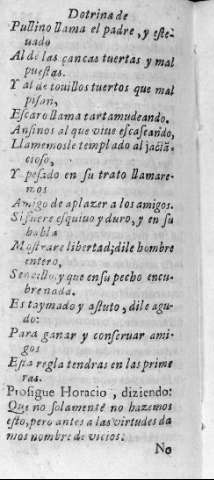 Dotrina de
Pullino llama el padre, y este-
uado
Al de las çancas tuertas y mal
puestas.
Y al de touillos tuertos que mal
pisan,
Escaro llama tartamudeando.
Ansinos al que viue escaseando,
Llamemosle templado al jactã-
cioso,
Y pesado en su trato llamare-
mos
Amigo de aplazer a los amigos.
Si fuere esquiuo y duro, y en su
habla
Mostrare libertad; dile hombre
entero.
Senzillo, y que en su pecho encu-
bre nada.
Es taymado y astuto, dile agu-
do:
Para ganar y conseruar ami-
gos
Esta regla tendras en las prime
ras.
Prosigue Horacio, diziendo:
Que no solamente no hazemos
esto, pero antes a las virtudes da
mos nombre de vicios.
No